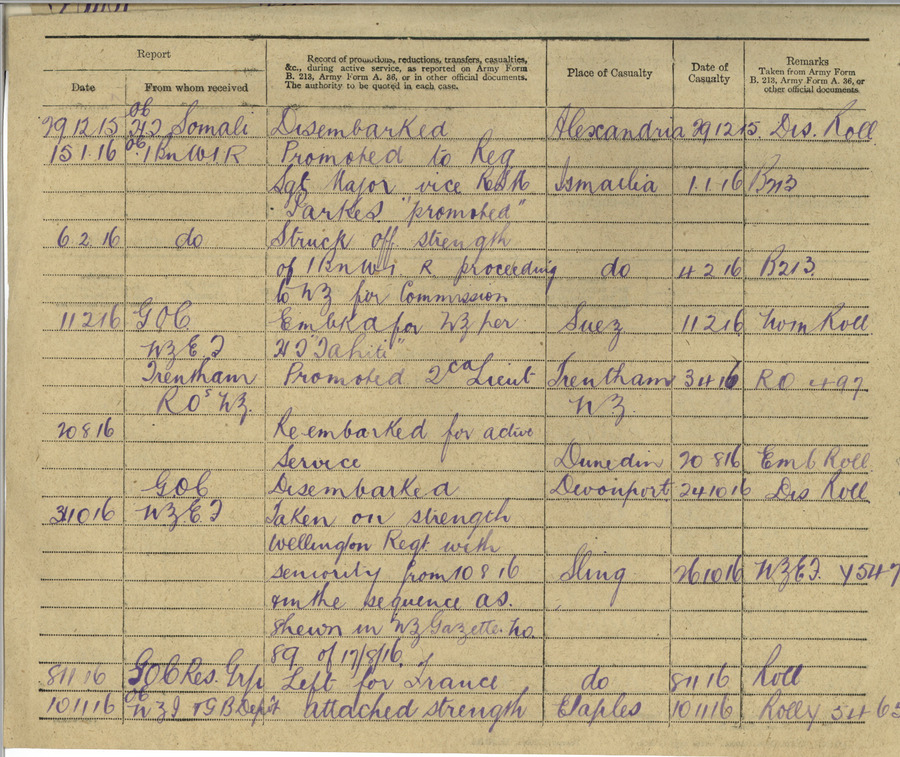 Report
Record of promotions, reductions, transfers, casualties,
&c., during active service, as reported on Army Form
B. 213, Army Form A. 36, or in other official documents.
The authority to be quoted in each case.
Place of Casualty
Date of
Casualty
Remarks
Taken from Army Form
B. 213, Army Form A. 36, or
other official documents.
Date
From whom received
OC
29 12 15 HT Somali Disembarked Alexandria 29 12 15 Dis. Roll
15 1 16 OC 1 Bn W I R Promoted to Reg
Sgt Major vice RSM Ismailia 1 1 16 B213
Parkes "promoted"
6 2 16 do Struck off strength
of 1 Bn W I R proceeding do 4 2 16 B213
to NZ for Commission
11 2 16 GOC Embkd for NZ per Suez 11 2 16 Nom Roll
NZEF HT "Tahiti"
Trentham Promoted 2nd Lieut Trentham 3 4 16 RO 497
ROs NZ. NZ.
20 8 16 Re-embarked for active
Service Dunedin 20 8 16 Emb Roll
GOC Disembarked Devonport 24 10 16 Dis Roll
31 10 16 NZEF Taken on strength
Wellington Regt with
seniority from 10 8 16 Sling 26 10 16 NZEF. Y547
& in the sequence as
shewn in NZ Gazette No.
89 of 17/8/16.
8 11 16 GOC Res. Grp Left for France do 8 11 16 Roll
OC
10 11 16 NZI & GB Depôt attached strength Etaples 10 11 16 Roll Y 5465